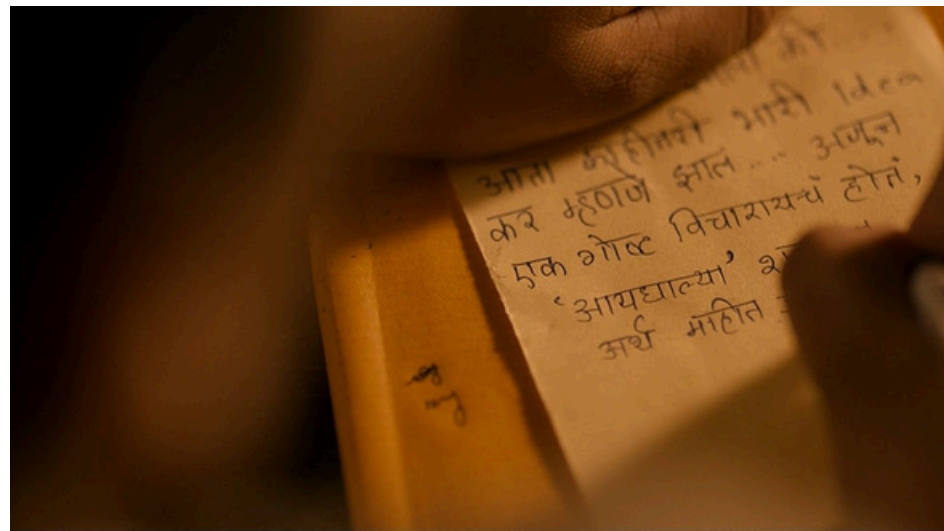 आता काहीतरी भारी Idea
कर म्हणजे झालं .... अजून
एक गोष्ट विचारायचं होतं,
'आयघाल्या'
अर्थ माहित